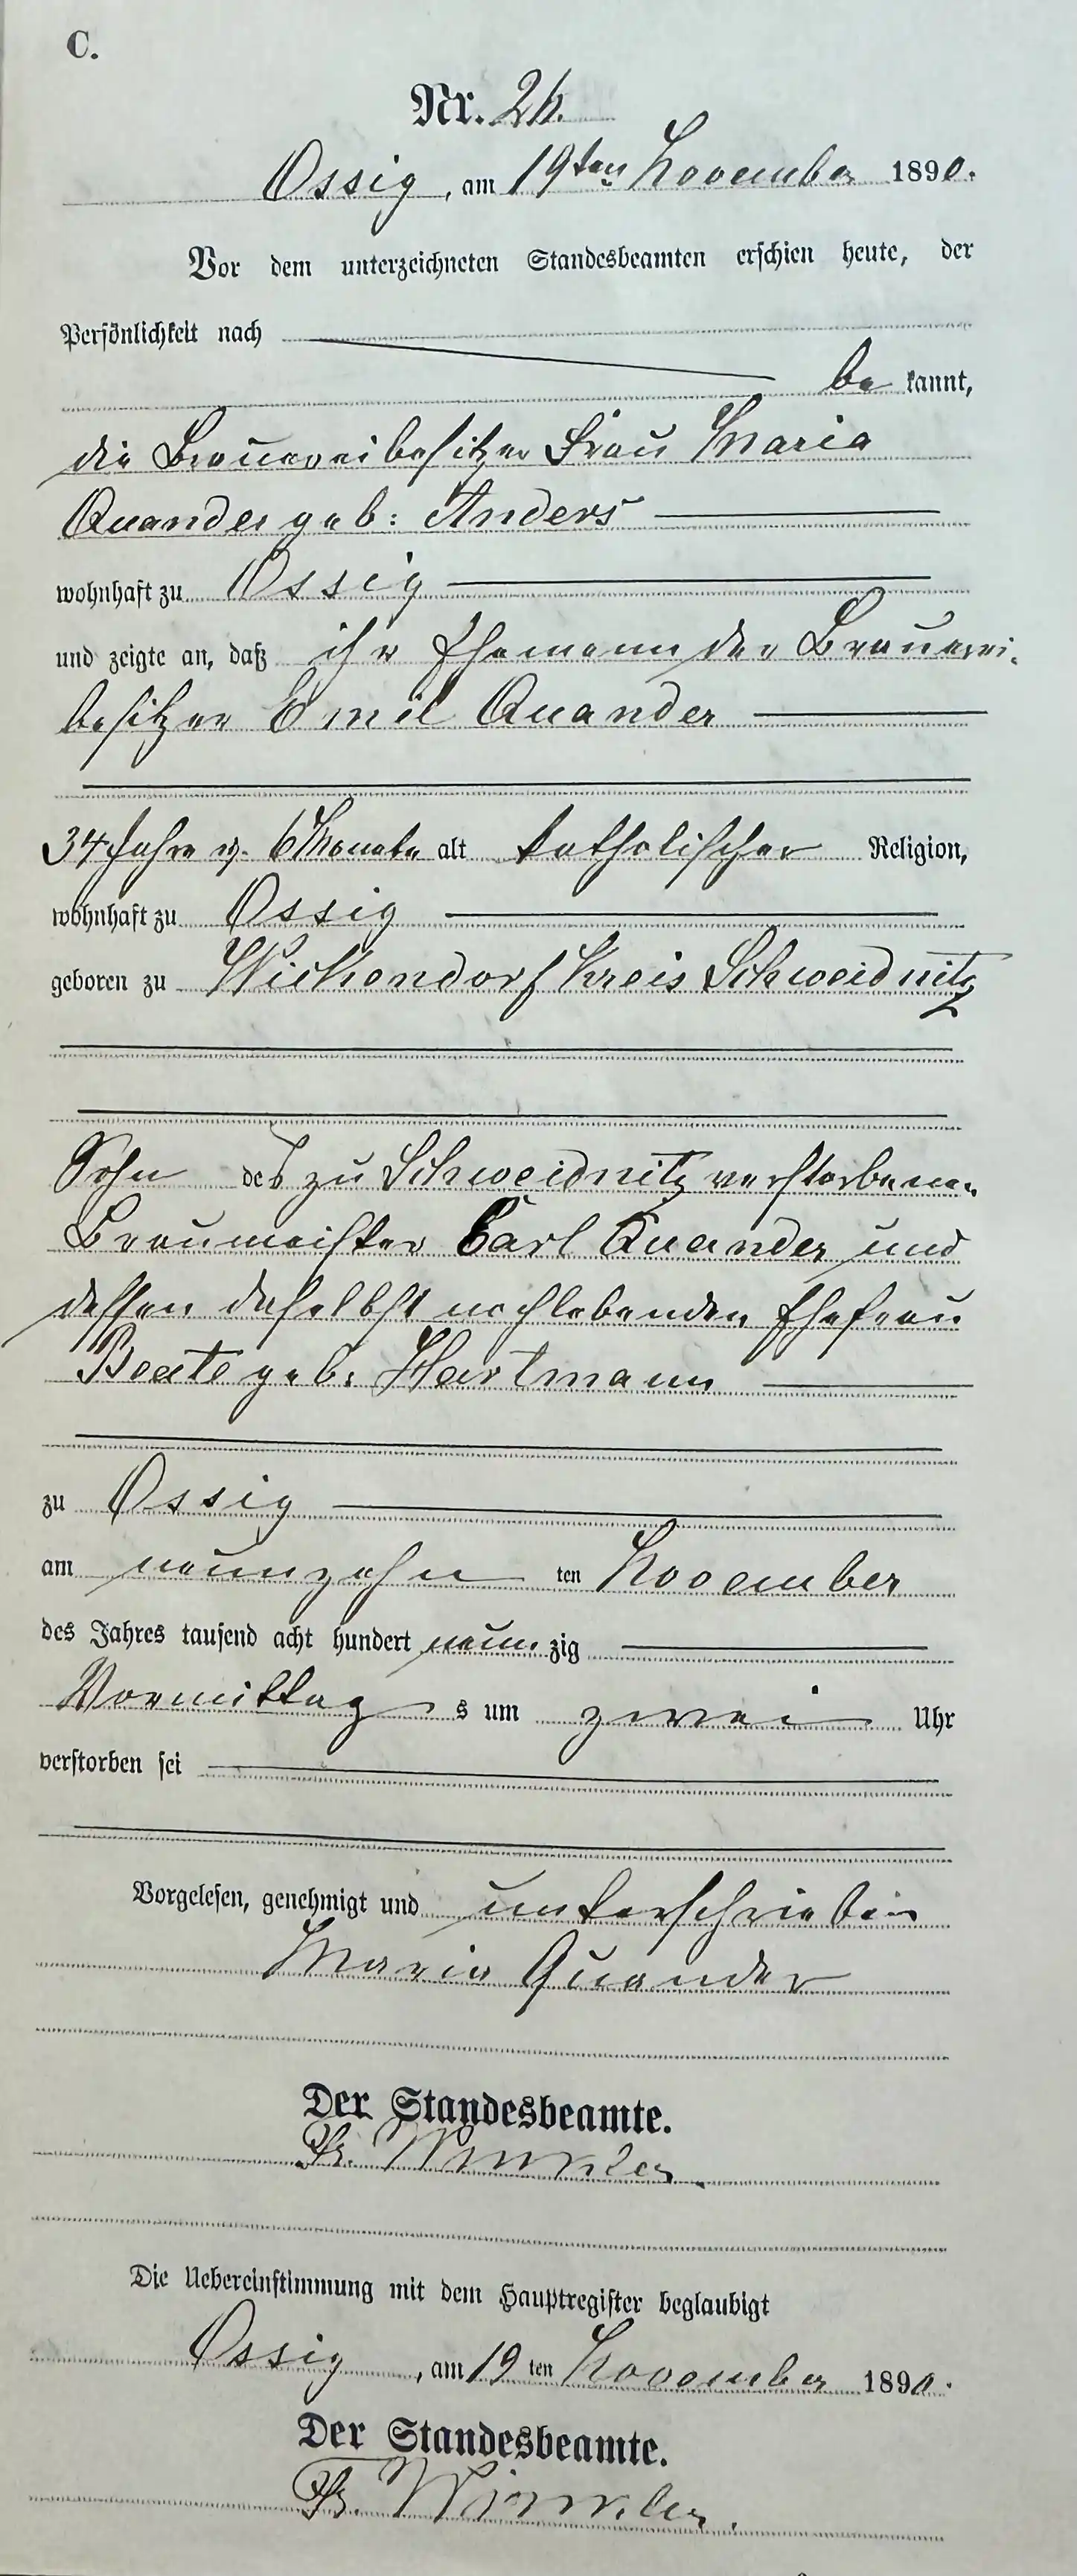 C.
Nr. 26.
Ossig, am 19ten November 1890.
Vor dem unterzeichneten Standesbeamten erschien heute, der
Persönlichkeit nach
be kannt,
die Brauereibesitzer Frau Maria
Quander geb: Anders
wohnhaft zu Ossig
und zeigte an, daß ihr Ehemann der Brauerei-
besitzer Emil Quander
34 Jahre u. 6 Monate alt katholischer Religion,
wohnhaft zu Ossig
geboren zu Wickendorf Kreis Schweidnitz
Sohn des zu Schweidnitz verstorbenen
Braumeister Carl Quander und
dessen daselbst nochlebenden Ehefrau
Beate geb. Hartmann
zu Ossig
am neunzehn ten November
des Jahres tausend acht hundert neun zig
Vormittag s um zwei Uhr
verstorben sei
Vorgelesen, genehmigt und unterschrieben
Maria Quander
Der Standesbeamte.
Fr. Winkler
Die Uebereinstimmung mit dem Hauptregister beglaubigt
Ossig, am 19 ten November 1890.
Der Standesbeamte.
Fr. Winkler.